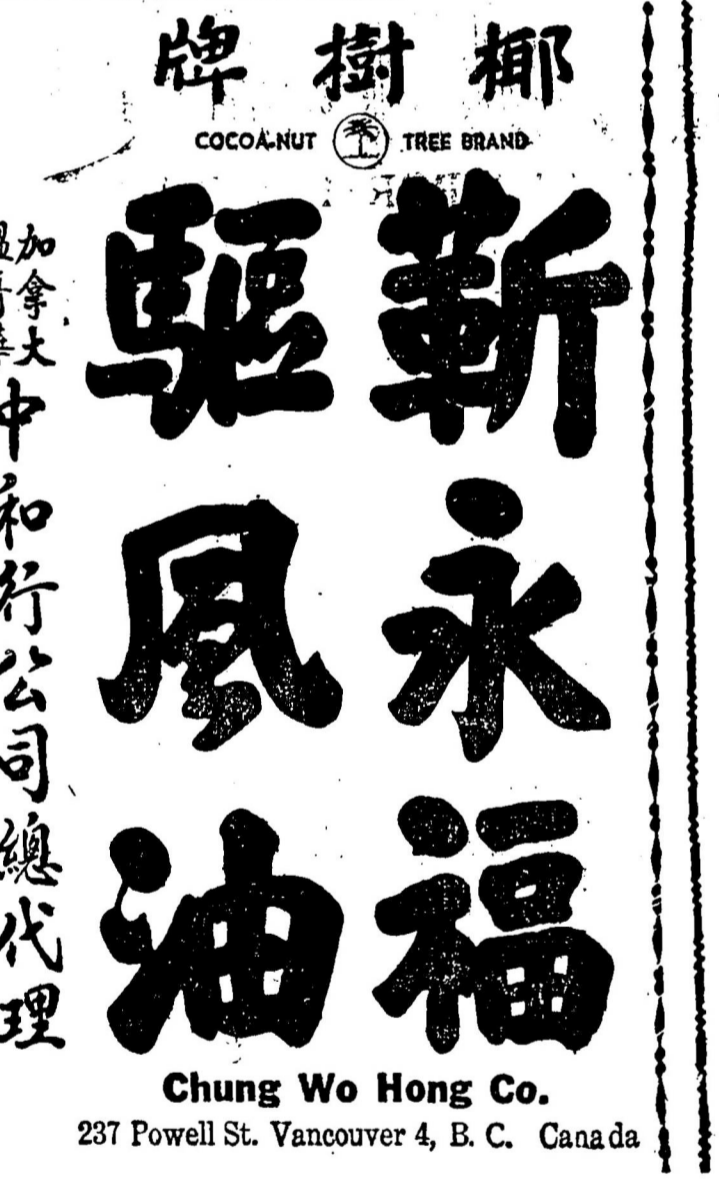 椰樹牌
COCOA-NUT TREE BRAND
蘄永福
驅風油
加拿大
中和行公司總代理
Chung Wo Hong Co.
237 Powell St. Vancouver 4, B. C. Canada